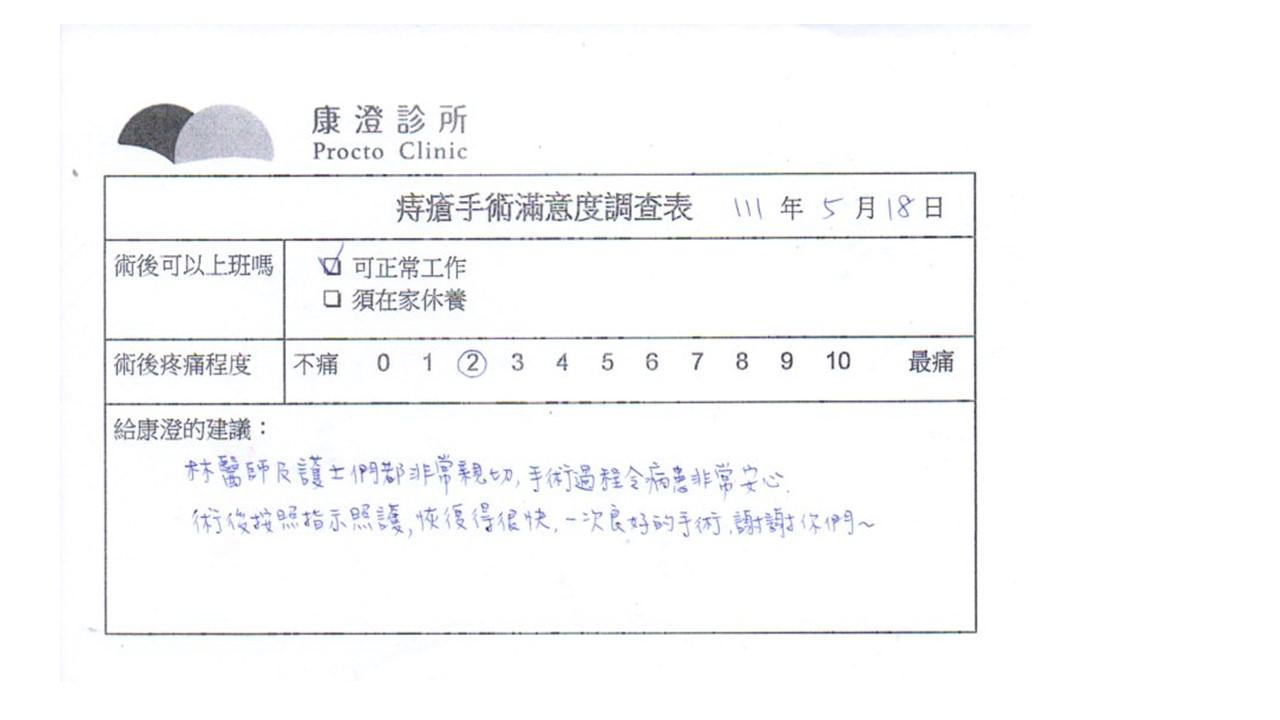 康澄診所
Procto Clinic
痔瘡手術滿意度調查表 111 年 5 月 18 日
術後可以上班嗎
可正常工作
須在家休養
術後疼痛程度 不痛 0 1 2 3 4 5 6 7 8 9 10 最痛
給康澄的建議：
林醫師及護士們都非常親切,手術過程令病患非常安心.
術後按照指示照護,恢復得很快,一次良好的手術,謝謝你們~